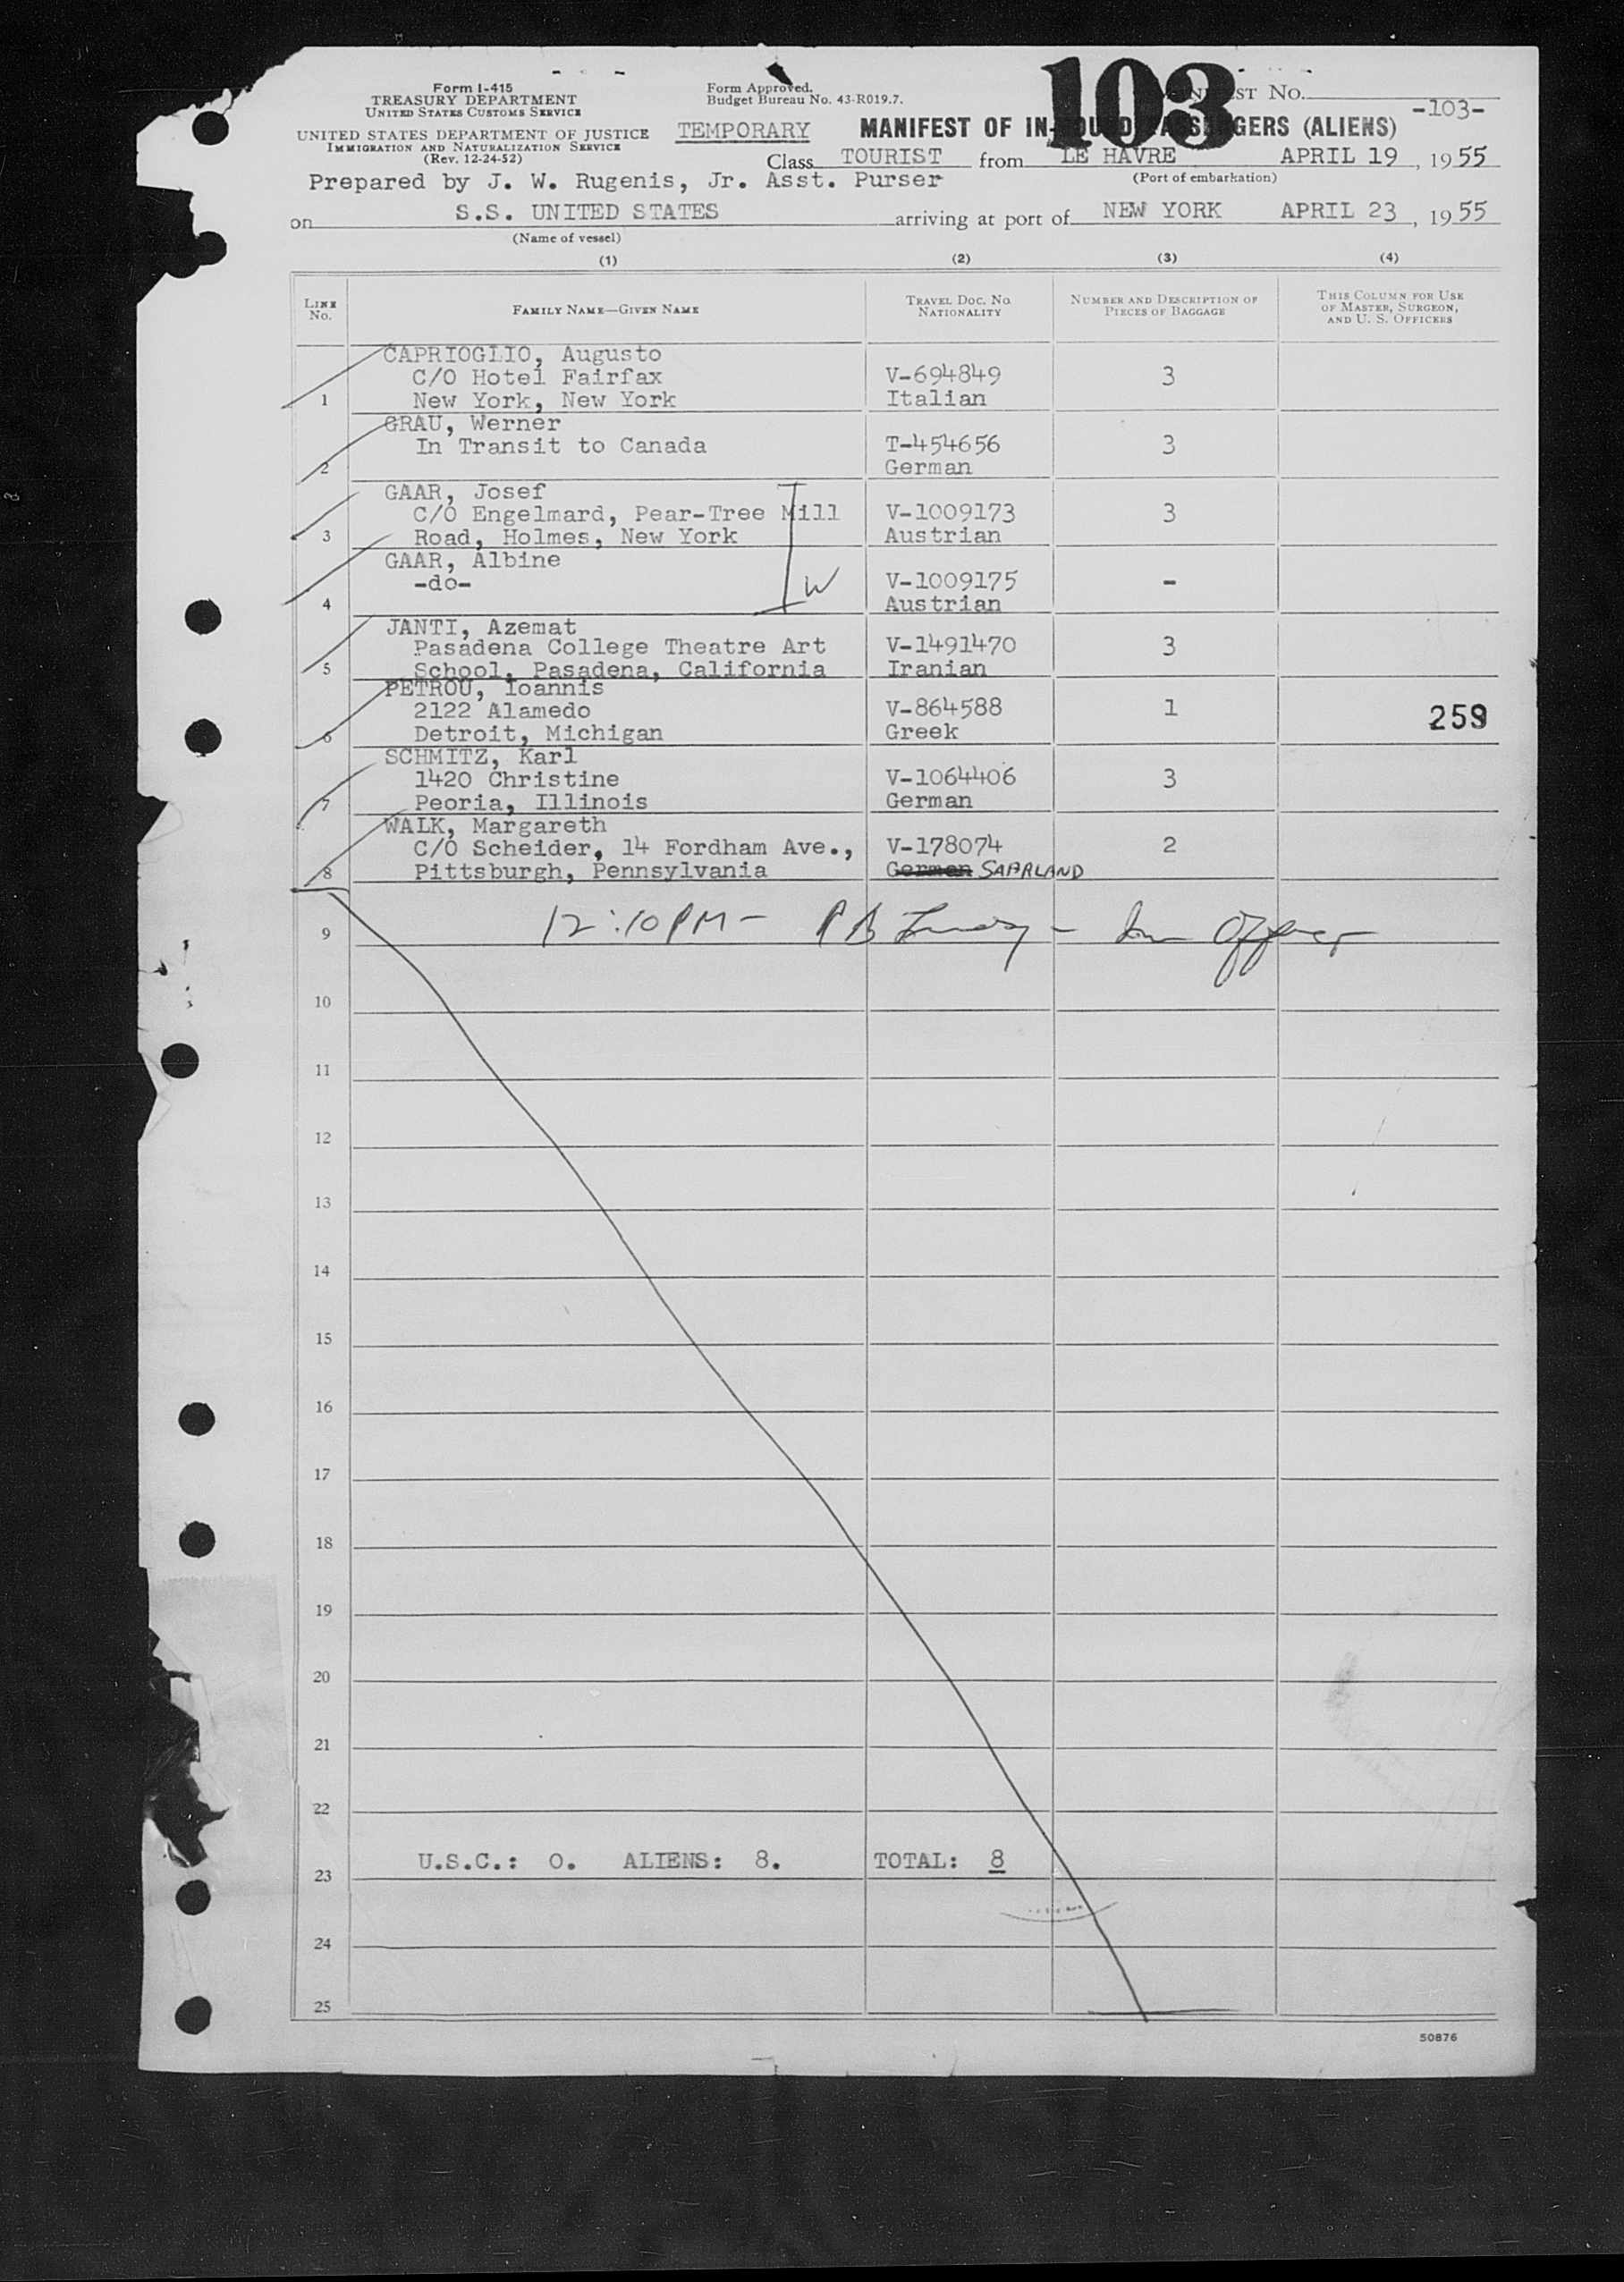 Form I-415
TREASURY DEPARTMENT
UNITED STATES CUSTOMS SERVICE
UNITED STATES DEPARTMENT OF JUSTICE
IMMIGRATION AND NATURALIZATION SERVICE
(Rev. 12-24-52)
Form Approved.
Budget Bureau No. 43-R019.7.
103
No.
-103-
TEMPORARY MANIFEST OF IN-BOUND PASSENGERS (ALIENS)
Class TOURIST from LE HAVRE APRIL 19, 1955
(Port of embarkation)
Prepared by J. W. Rugenis, Jr. Asst. Purser
on S.S. UNITED STATES arriving at port of NEW YORK APRIL 23, 1955
(Name of vessel)
(1) (2) (3) (4)
LINE No. FAMILY NAME—GIVEN NAME TRAVEL DOC. No. NATIONALITY NUMBER AND DESCRIPTION OF PIECES OF BAGGAGE THIS COLUMN FOR USE OF MASTER, SURGEON, AND U. S. OFFICERS
CAPRIOGLIO, Augusto
C/O Hotel Fairfax V-694849 3
1 New York, New York Italian
GRAU, Werner
In Transit to Canada T-454656 3
2 German
GAAR, Josef
C/O Engelmard, Pear-Tree Mill V-1009173 3
3 Road, Holmes, New York Austrian
GAAR, Albine
-do- W V-1009175 -
4 Austrian
JANTI, Azemat
Pasadena College Theatre Art V-1491470 3
5 School, Pasadena, California Iranian
PETROU, Ioannis
2122 Alamedo V-864588 1 259
6 Detroit, Michigan Greek
SCHMITZ, Karl
1420 Christine V-1064406 3
7 Peoria, Illinois German
WALK, Margareth
C/O Scheider, 14 Fordham Ave., V-178074 2
8 Pittsburgh, Pennsylvania German SAARLAND
9 12:10 PM - Officer
10
11
12
13
14
15
16
17
18
19
20
21
22
U.S.C.: 0. ALIENS: 8. TOTAL: 8
23
24
25
50876